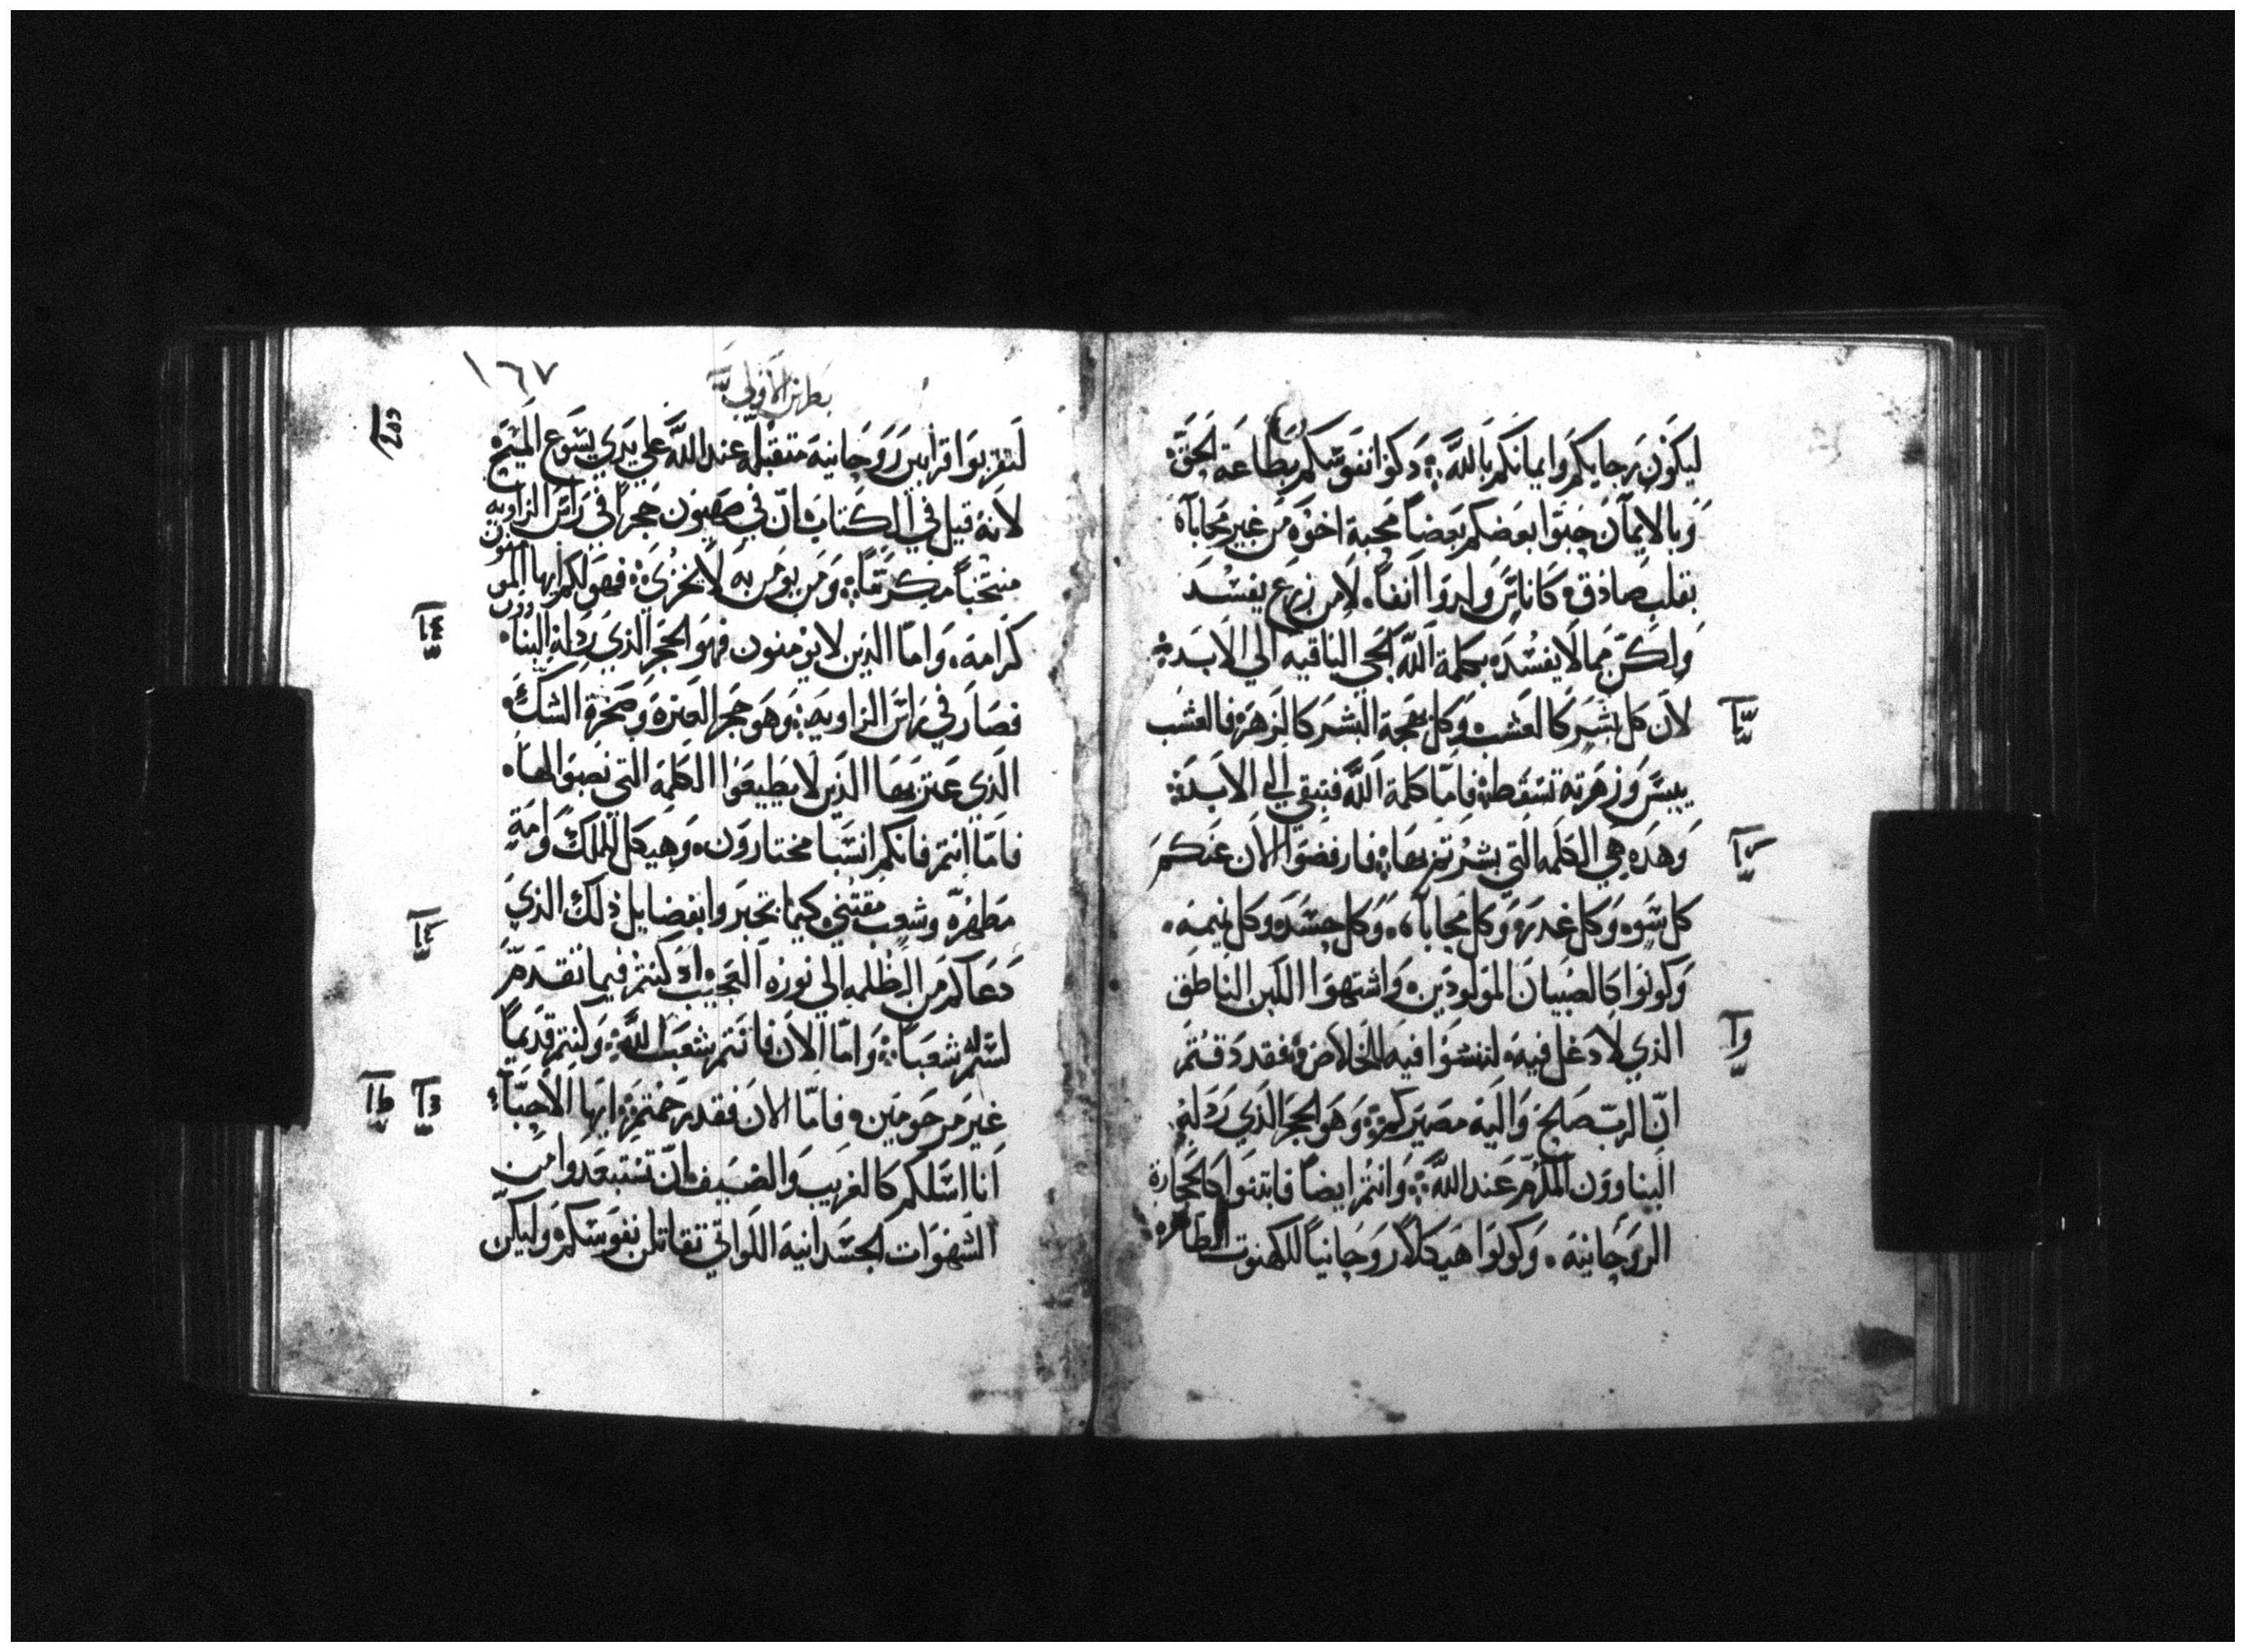 ليكون رجايكم وايمانكم بالله ذكوا نفوسكم بطاعة الحق
وبالايمان حبوا بعضكم بعضاً محبة اخوه من غير محاباه
بقلب صادق كاناس ولدوا انفاً لا من زرع يفسد
ولكن مما لا يفسد بكلمة الله الحي الباقيه الي الابد
لان كل بشر كالعشب وكل بهجة البشر كالزهره فالعشب
ييبس وزهرته تسقط فاما كلمة الله فتبقي الي الابد
وهذه هي الكلمه التي بشرتم بها فارفضوا الان عنكم
كل سوء وكل غدر وكل محاباه وكل حسد وكل نميمه
وكونوا كالصبيان المولودين واشتهوا اللبن الناطق
الذي لا دغل فيه لتنشوا فيه للخلاص فقد ذقتم
ان الرب صالح واليه مصيركم وهو الحجر الذي رذله
البناوون المكرم عند الله وانتم ايضاً فابتنوا كالحجارة
الروحانيه وكونوا هيكلاً روحانياً للكهنوت الطاهره
١٦٧
بطرس الاولي
لتقربوا قرابين روحانيه متقبله عند الله علي يدي يسوع المسيح
لانه قيل في الكتاب ان في صهيون حجراً في راس الزاويه
منتخباً مكرماً ومن يومن به لا يخزي فهو لكم ايها المومنون
كرامه واما الذين لا يومنون فهو الحجر الذي رذله البناوون
فصار في راس الزاويه وهو حجر العثره وصخرة الشك
الذي عثر بها الذين لا يطيعوا الكلمه التي نصبوا لها
فاما انتم فانكم انسبا مختارون وهيكل للملك وامة
مطهره وشعب مقتني كيما تخبروا بفضايل ذلك الذي
دعاكم من الظلمه الي نوره العجيب اذ كنتم فيما تقدم
لستم شعباً واما الان فانتم شعب الله وكنتم قديماً
غير مرحومين فاما الان فقد رحمتم ايها الاحبا
انا اسلكم كالغريب والضيف ان تستبعدوا من
الشهوات الجسدانيه اللواتي تقاتلن نفوسكم وليكن